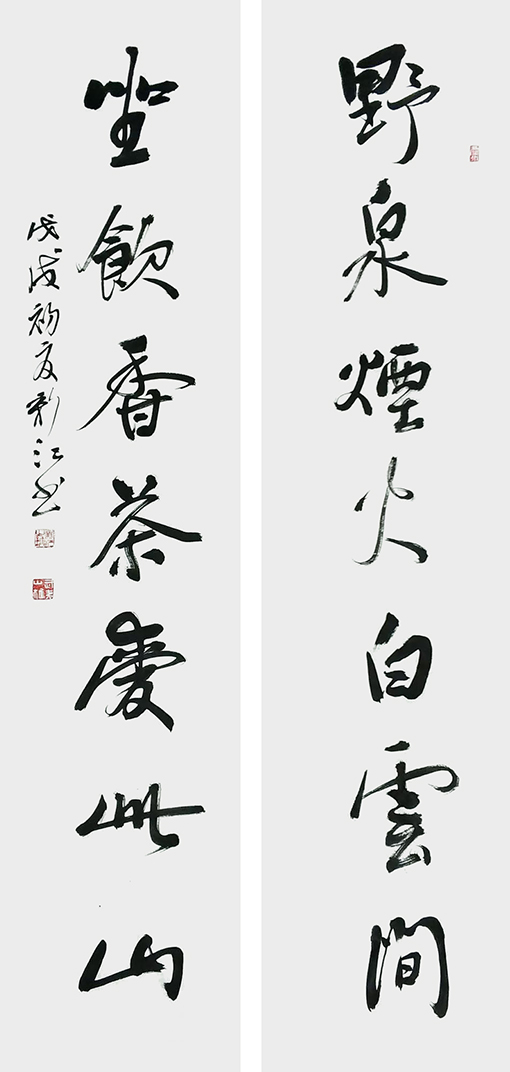 野泉煙火白雲間
坐飲香茶愛此山
戊戌初夏新江書